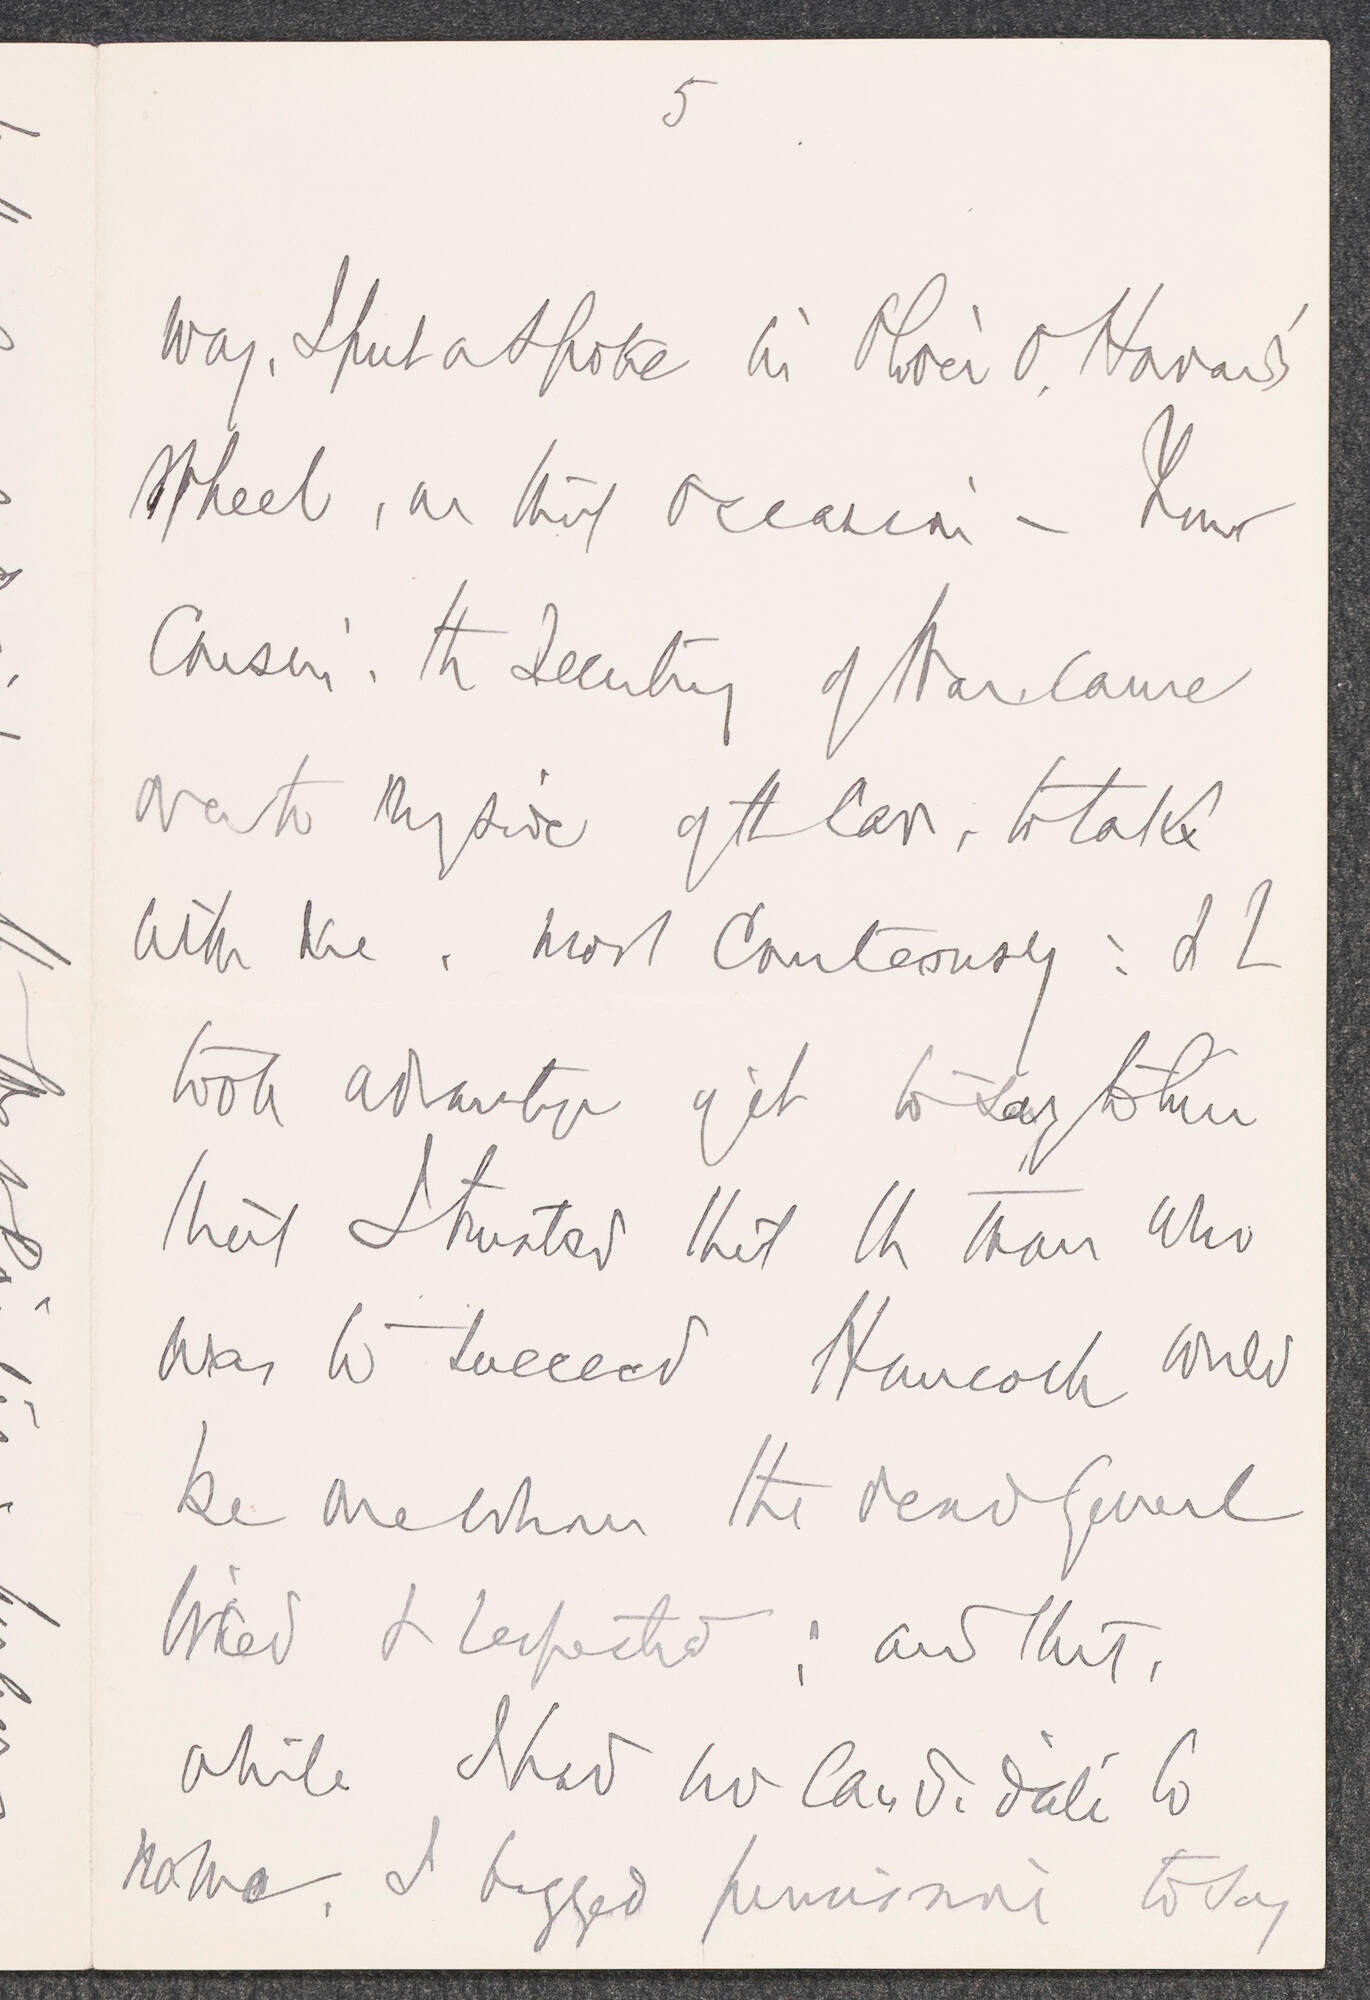 5
way, I put a spoke in Oliver O. Howard's
Wheel, on that occasion — Your
Cousin, the Secretary of War came
over to my side of the Car, to talk
with me, most Courteously: & I
took advantage of it to say to him
that I trusted that the man who
was to succeed Hancock would
be one whom the dead General
liked & respected; and that,
while I had no Candidate to
name, I begged permission to say